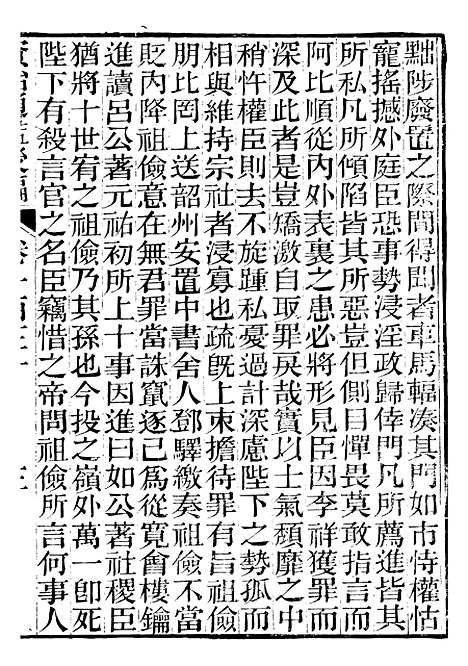 黜陟廢置之際間得聞者車馬輻湊其門如市恃權怙
寵搖撼外庭臣恐事勢浸淫政歸倖門凡所薦進皆其
所私凡所傾陷皆其所惡豈但側目憚畏莫敢指言而
阿比順從內外表裏之患必將形見臣因李祥獲罪而
深及此者是豈矯激自取罪戾哉實以士氣頹靡之中
稍忤權臣則去不旋踵私憂過計深慮陛下之勢孤而
相與維持宗社者浸寡也疏旣上束擔待罪有旨祖儉
朋比罔上送韶州安置中書舍人鄧驛繳奏祖儉不當
貶內降祖儉意在無君罪當誅竄逐已爲從寬會樓鑰
進讀呂公著元祐初所上十事因進曰如公著社稷臣
猶將十世宥之祖儉乃其孫也今投之嶺外萬一卽死
陛下有殺言官之名臣竊惜之帝問祖儉所言何事人